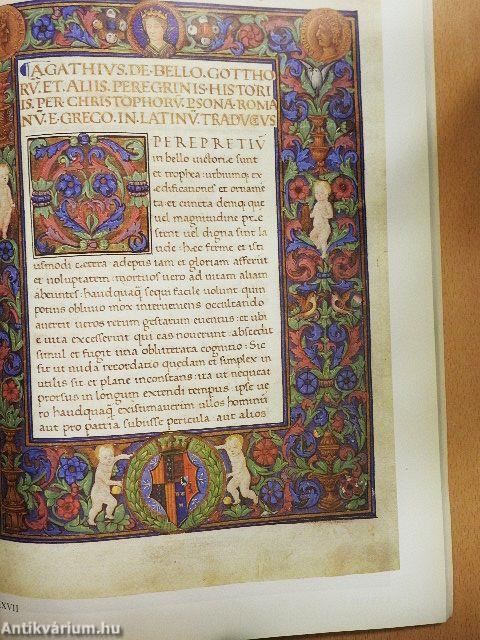 AGATHIVS. DE. BELLO. GOTTHO
RŪ. ET. ALIIS. PEREGRINIS. HISTORI
IS. PER. CHRISTOPHORŪ. PSONĀ. ROMA
NŪ. E. GRECO. IN. LATINŪ. TRADVCTVS
PEREPRETIŪ
in bello uictorie sunt
et trophea: urbiumq; ex
edificationes et orname
ta: et cuncta demq; que
uel magnitudine pre
stent uel digna sint la
ude: hec ferme et isti
usmodi cetera adeptis iam et gloriam afferūt
et uoluptatem: mortuos uero ad uitam aliam
abeuntis: haudquaq̄ sequi facile uolunt quin
potius obliuio mox interueniens occultando
auertit ueros rerum gestarum euentus: et ubi
e uita excesserint qui eas nouerunt abscedit
simul et fugit una obliterata cognitio: Sic
fit ut nuda recordatio quedam et simplex in
utilis sit et plane inconstans: ita ut nequeat
prorsus in longum extendi tempus: ipse ue
ro haudquaq̄ existimauerim ullos hominū
aut pro patria subiisse pericula: aut alios
XVII
Antikvárium.hu